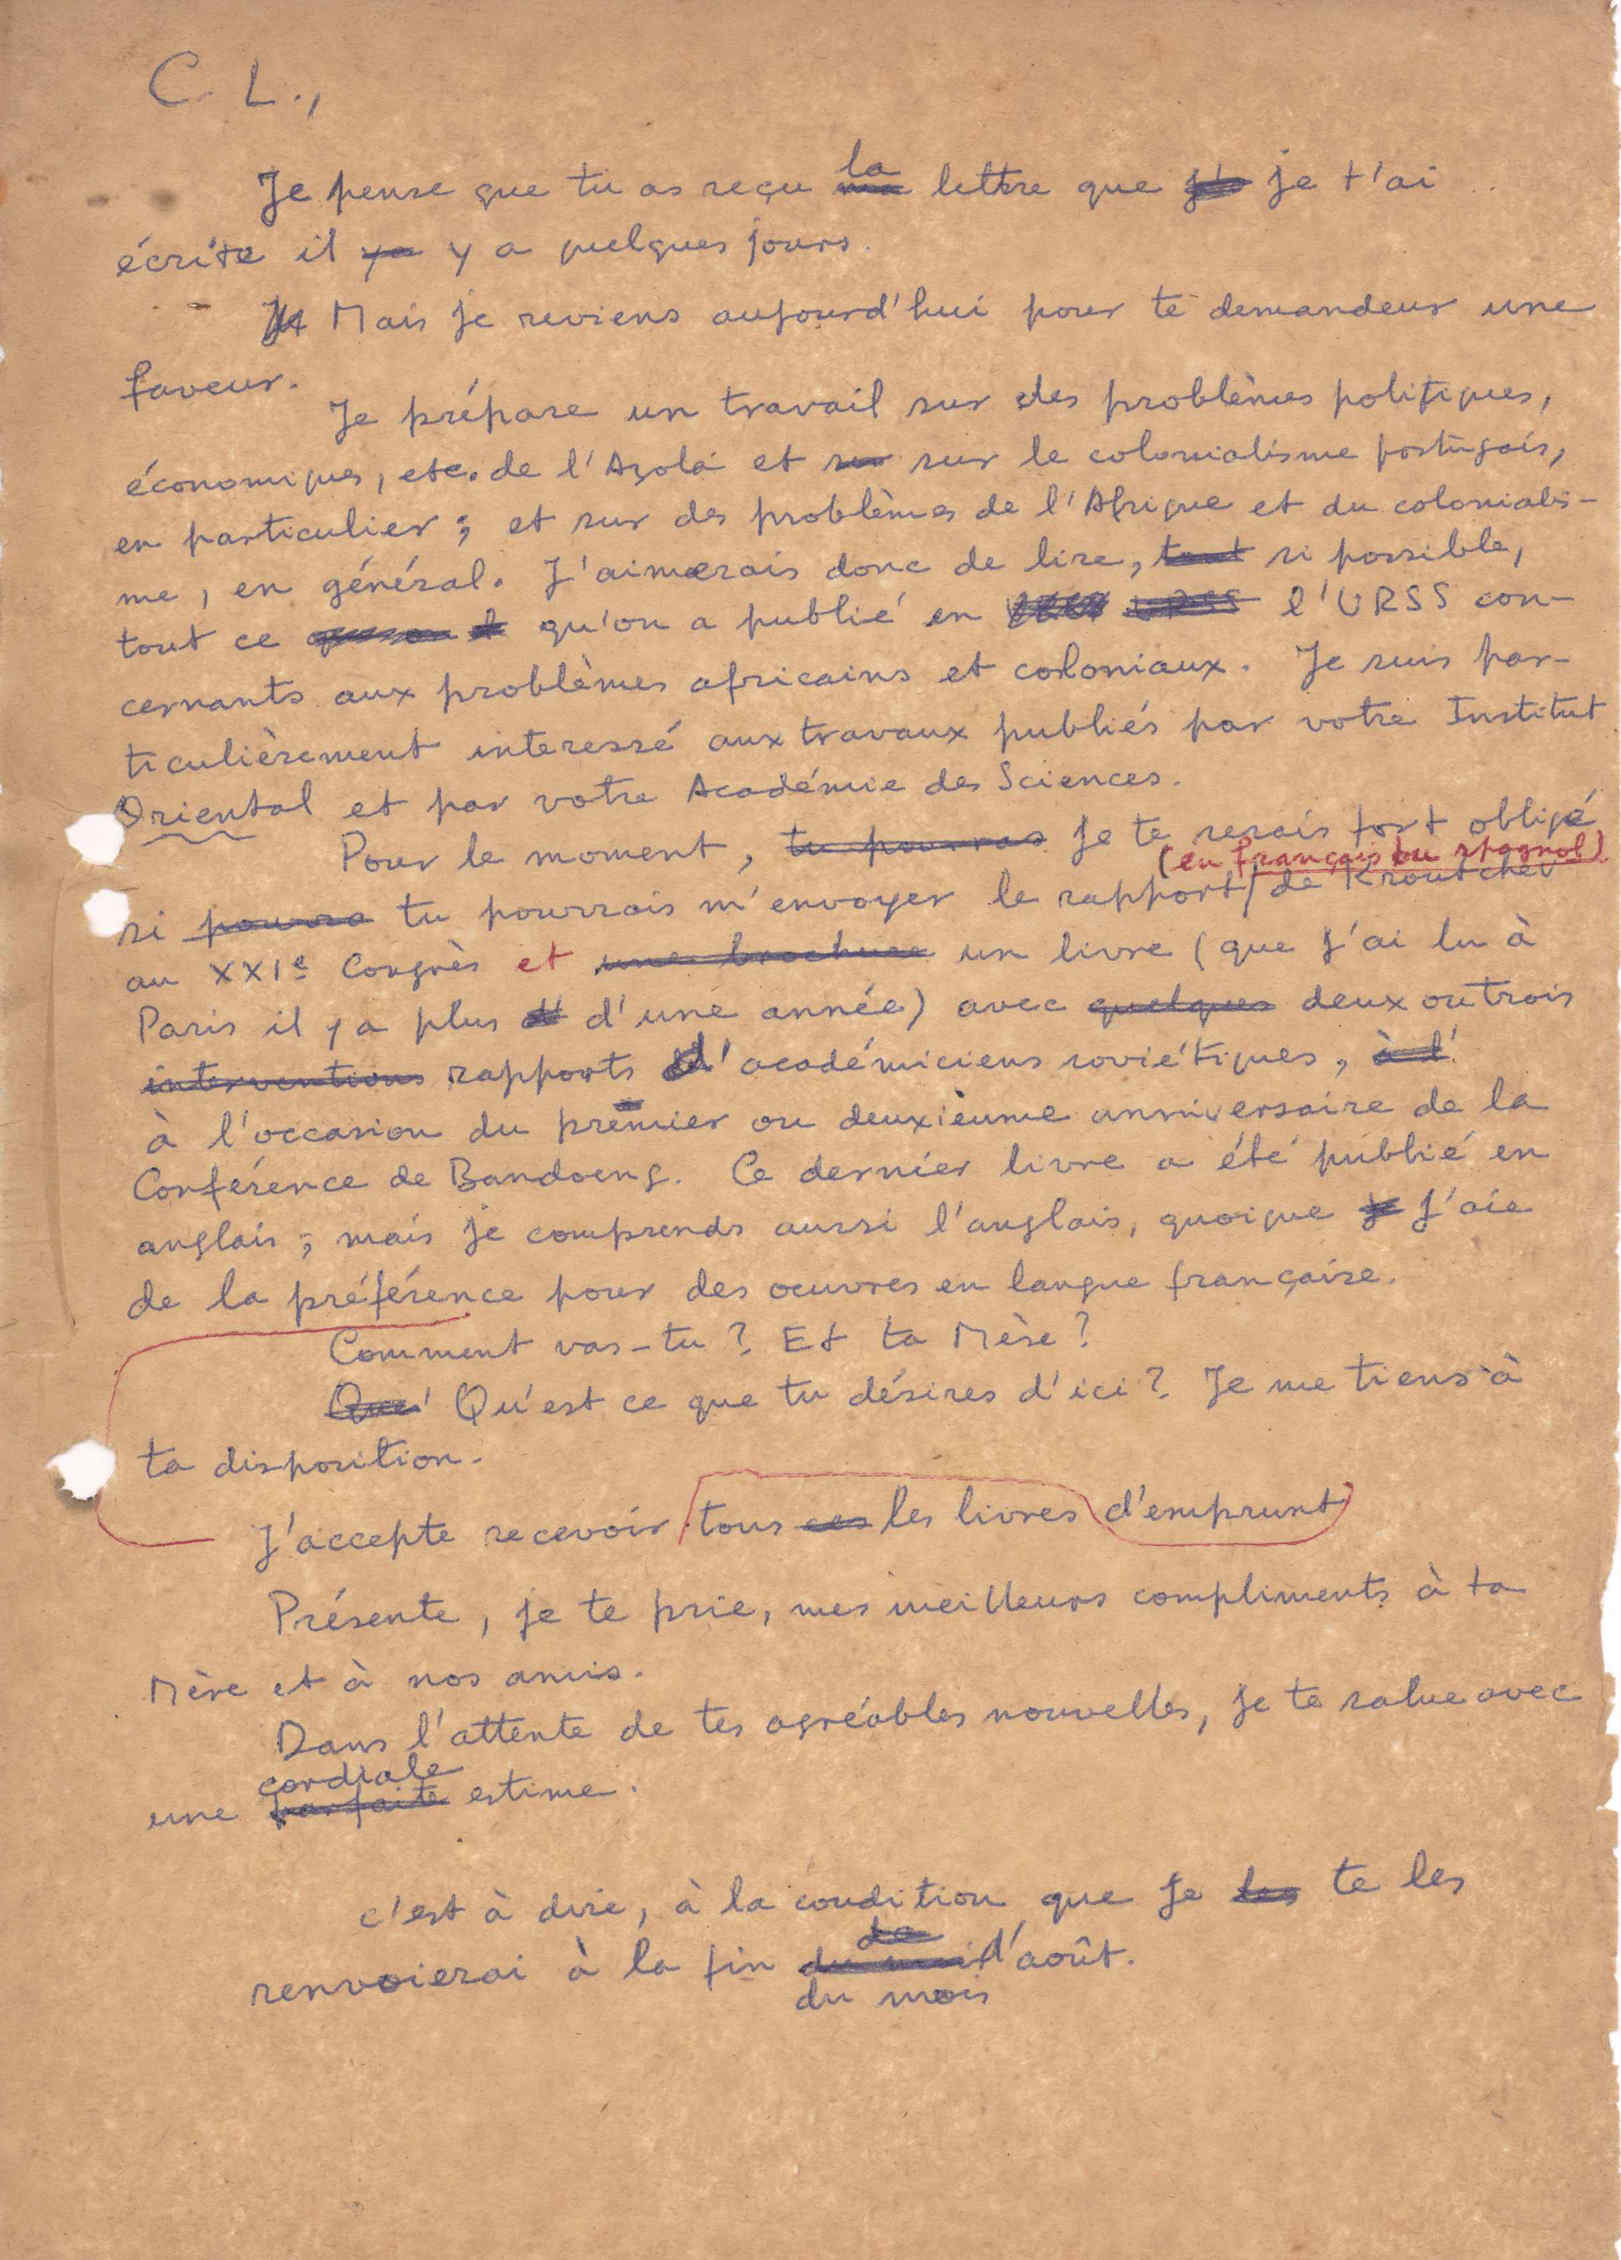 C. L.,
Je pense que tu as reçu la lettre que je t'ai
écrite il y a quelques jours.
Mais je reviens aujourd'hui pour te demandeur une
faveur.
Je prépare un travail sur des problèmes politiques,
économiques, etc. de l'Agola et sur le colonialisme portugais,
en particulier ; et sur des problèmes de l'Afrique et du colonialis-
me, en général. J'aimerais donc de lire, si possible,
tout ce qu'on a publié en l'URSS con-
cernants aux problèmes africains et coloniaux. Je suis par-
ticulièrement interessé aux travaux publiés par votre Institut
Oriental et par votre Académie des Sciences.
Pour le moment, tu pourras je te serais fort obligé
(en français ou spagnol)
si pourra tu pourrais m'envoyer le rapport de Kroutchev
au XXIe Congrès et une brochure un livre (que j'ai lu à
Paris il y a plus d'une année) avec quelques deux ou trois
interventions rapports d'académiciens soviétiques, à l'
à l'occasion du premier ou deuxièume anniversaire de la
Conférence de Bandoeng. Ce dernier livre a été publié en
anglais ; mais je comprends aussi l'anglais, quoique je j'aie
de la préférence pour des oeuvres en langue française.
Comment vas-tu ? Et ta Mère ?
Que Qu'est ce que tu désires d'ici ? Je me tiens à
ta disposition.
J'accepte recevoir tous ces les livres d'emprunt
Présente, je te prie, mes meilleurs compliments à ta
Mère et à nos amis.
Dans l'attente de tes agréables nouvelles, je te salue avec
cordiale
une parfaite estime.
c'est à dire, à la condition que je les te les
de
renvoierai à la fin d'août.
du mois